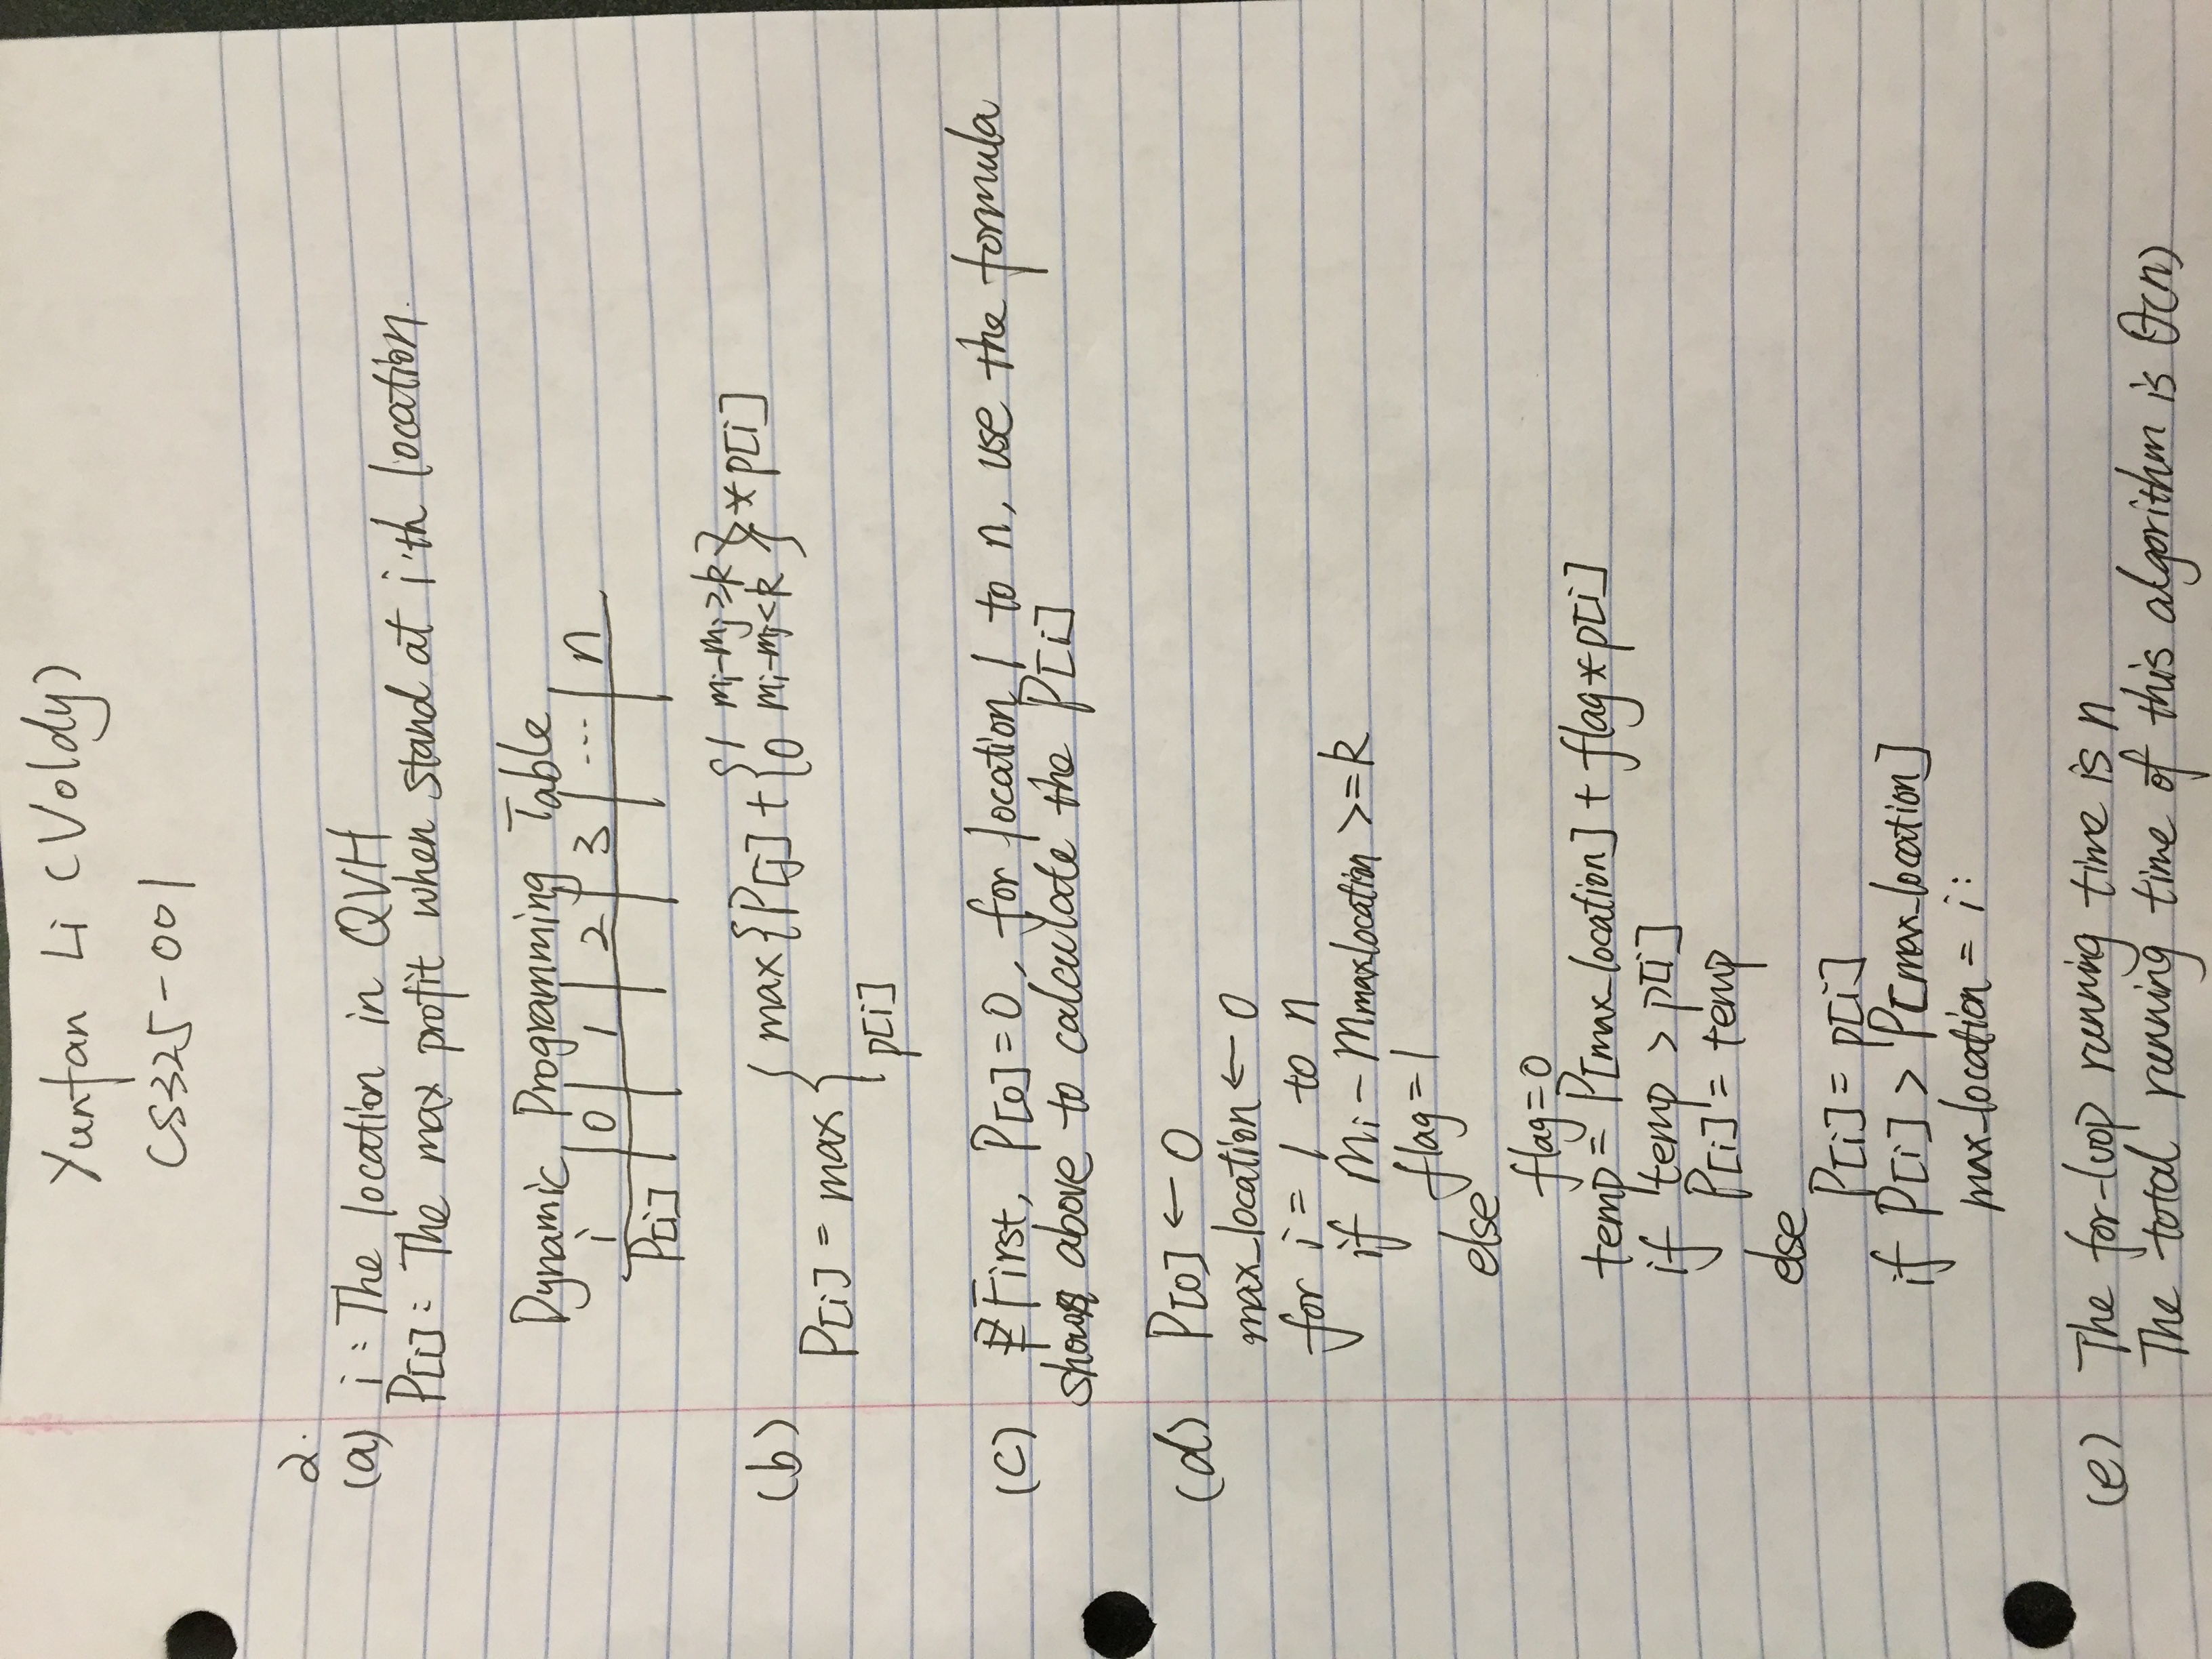 Yunfan Li (Voldy)
CS325-001
2.
(a) i: The location in QVH
P[i]: The max profit when stand at i'th location.
Dynamic Programming Table
i | 0 | 1 | 2 | 3 | ... | n
P[i]
(b) P[i] = max { max{P[j] + {1 mi-mj≥k
0 mi-mj<k} * p[i]
p[i]
(c) First, P[0]=0, for location 1 to n, use the formula
shown above to calculate the P[i]
(d) P[0] ← 0
max_location ← 0
for i = 1 to n
if mi - mmaxlocation >= k
flag=1
else
flag=0
temp = P[max_location] + flag*p[i]
if temp > p[i]
P[i] = temp
else
P[i] = p[i]
if P[i] > P[max_location]
max_location = i:
(e) The for-loop running time is n
The total running time of this algorithm is θ(n)